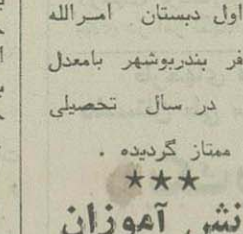 اول دبستان امرالله
فر بندربوشهر بامعدل
در سال تحصیلی
ممتاز گردیده .
★★★
نش آموزان